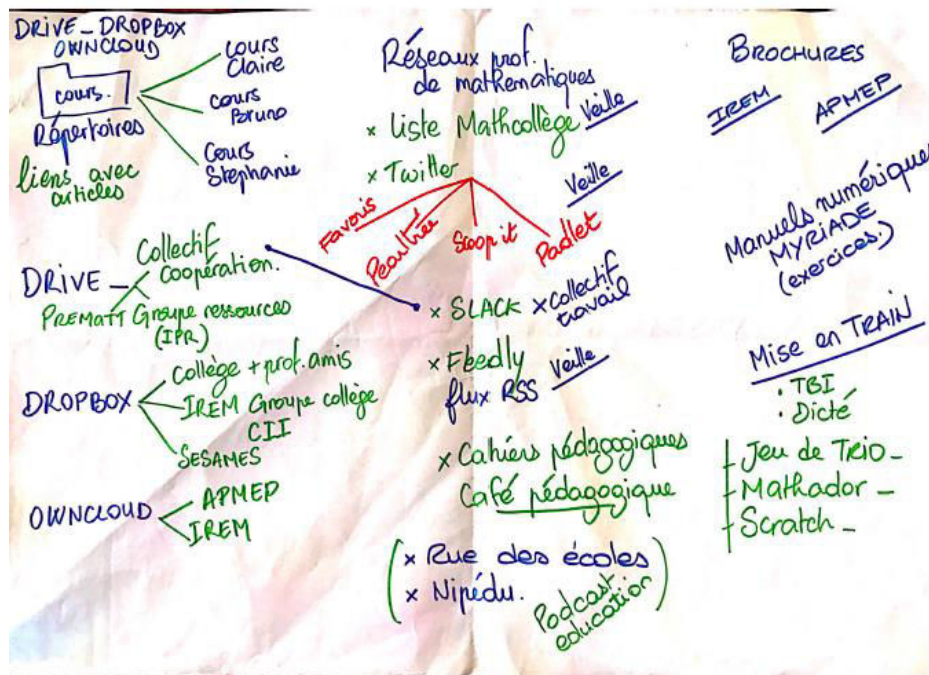 DRIVE _ DROPBOX
OWNCLOUD
cours.
Répertoires
liens avec
articles
cours
Claire
cours
Bruno
Cours
Stephanie
DRIVE _
Collectif
coopération.
PREMaTT Groupe ressources
(IPR)
DROPBOX
Collège + prof. amis
IREM Groupe collège
CII
SESAMES
OWNCLOUD
APMEP
IREM
Réseaux prof.
de mathematiques
x Liste Mathcollège Veille
x Twitter Veille
Favoris
Pearltrée
Scoop it
Padlet
x SLACK x collectif
travail
x Feedly Veille
flux RSS
x Cahiers pédagogiques
Café pédagogique
x Rue des écoles
x Nipédu.
Podcast
education
BROCHURES
IREM APMEP
Manuels numériques
MYRIADE
(exercices.)
Mise en TRAIN
. TBI
. Dicté
Jeu de TRIO _
Mathador _
Scratch _